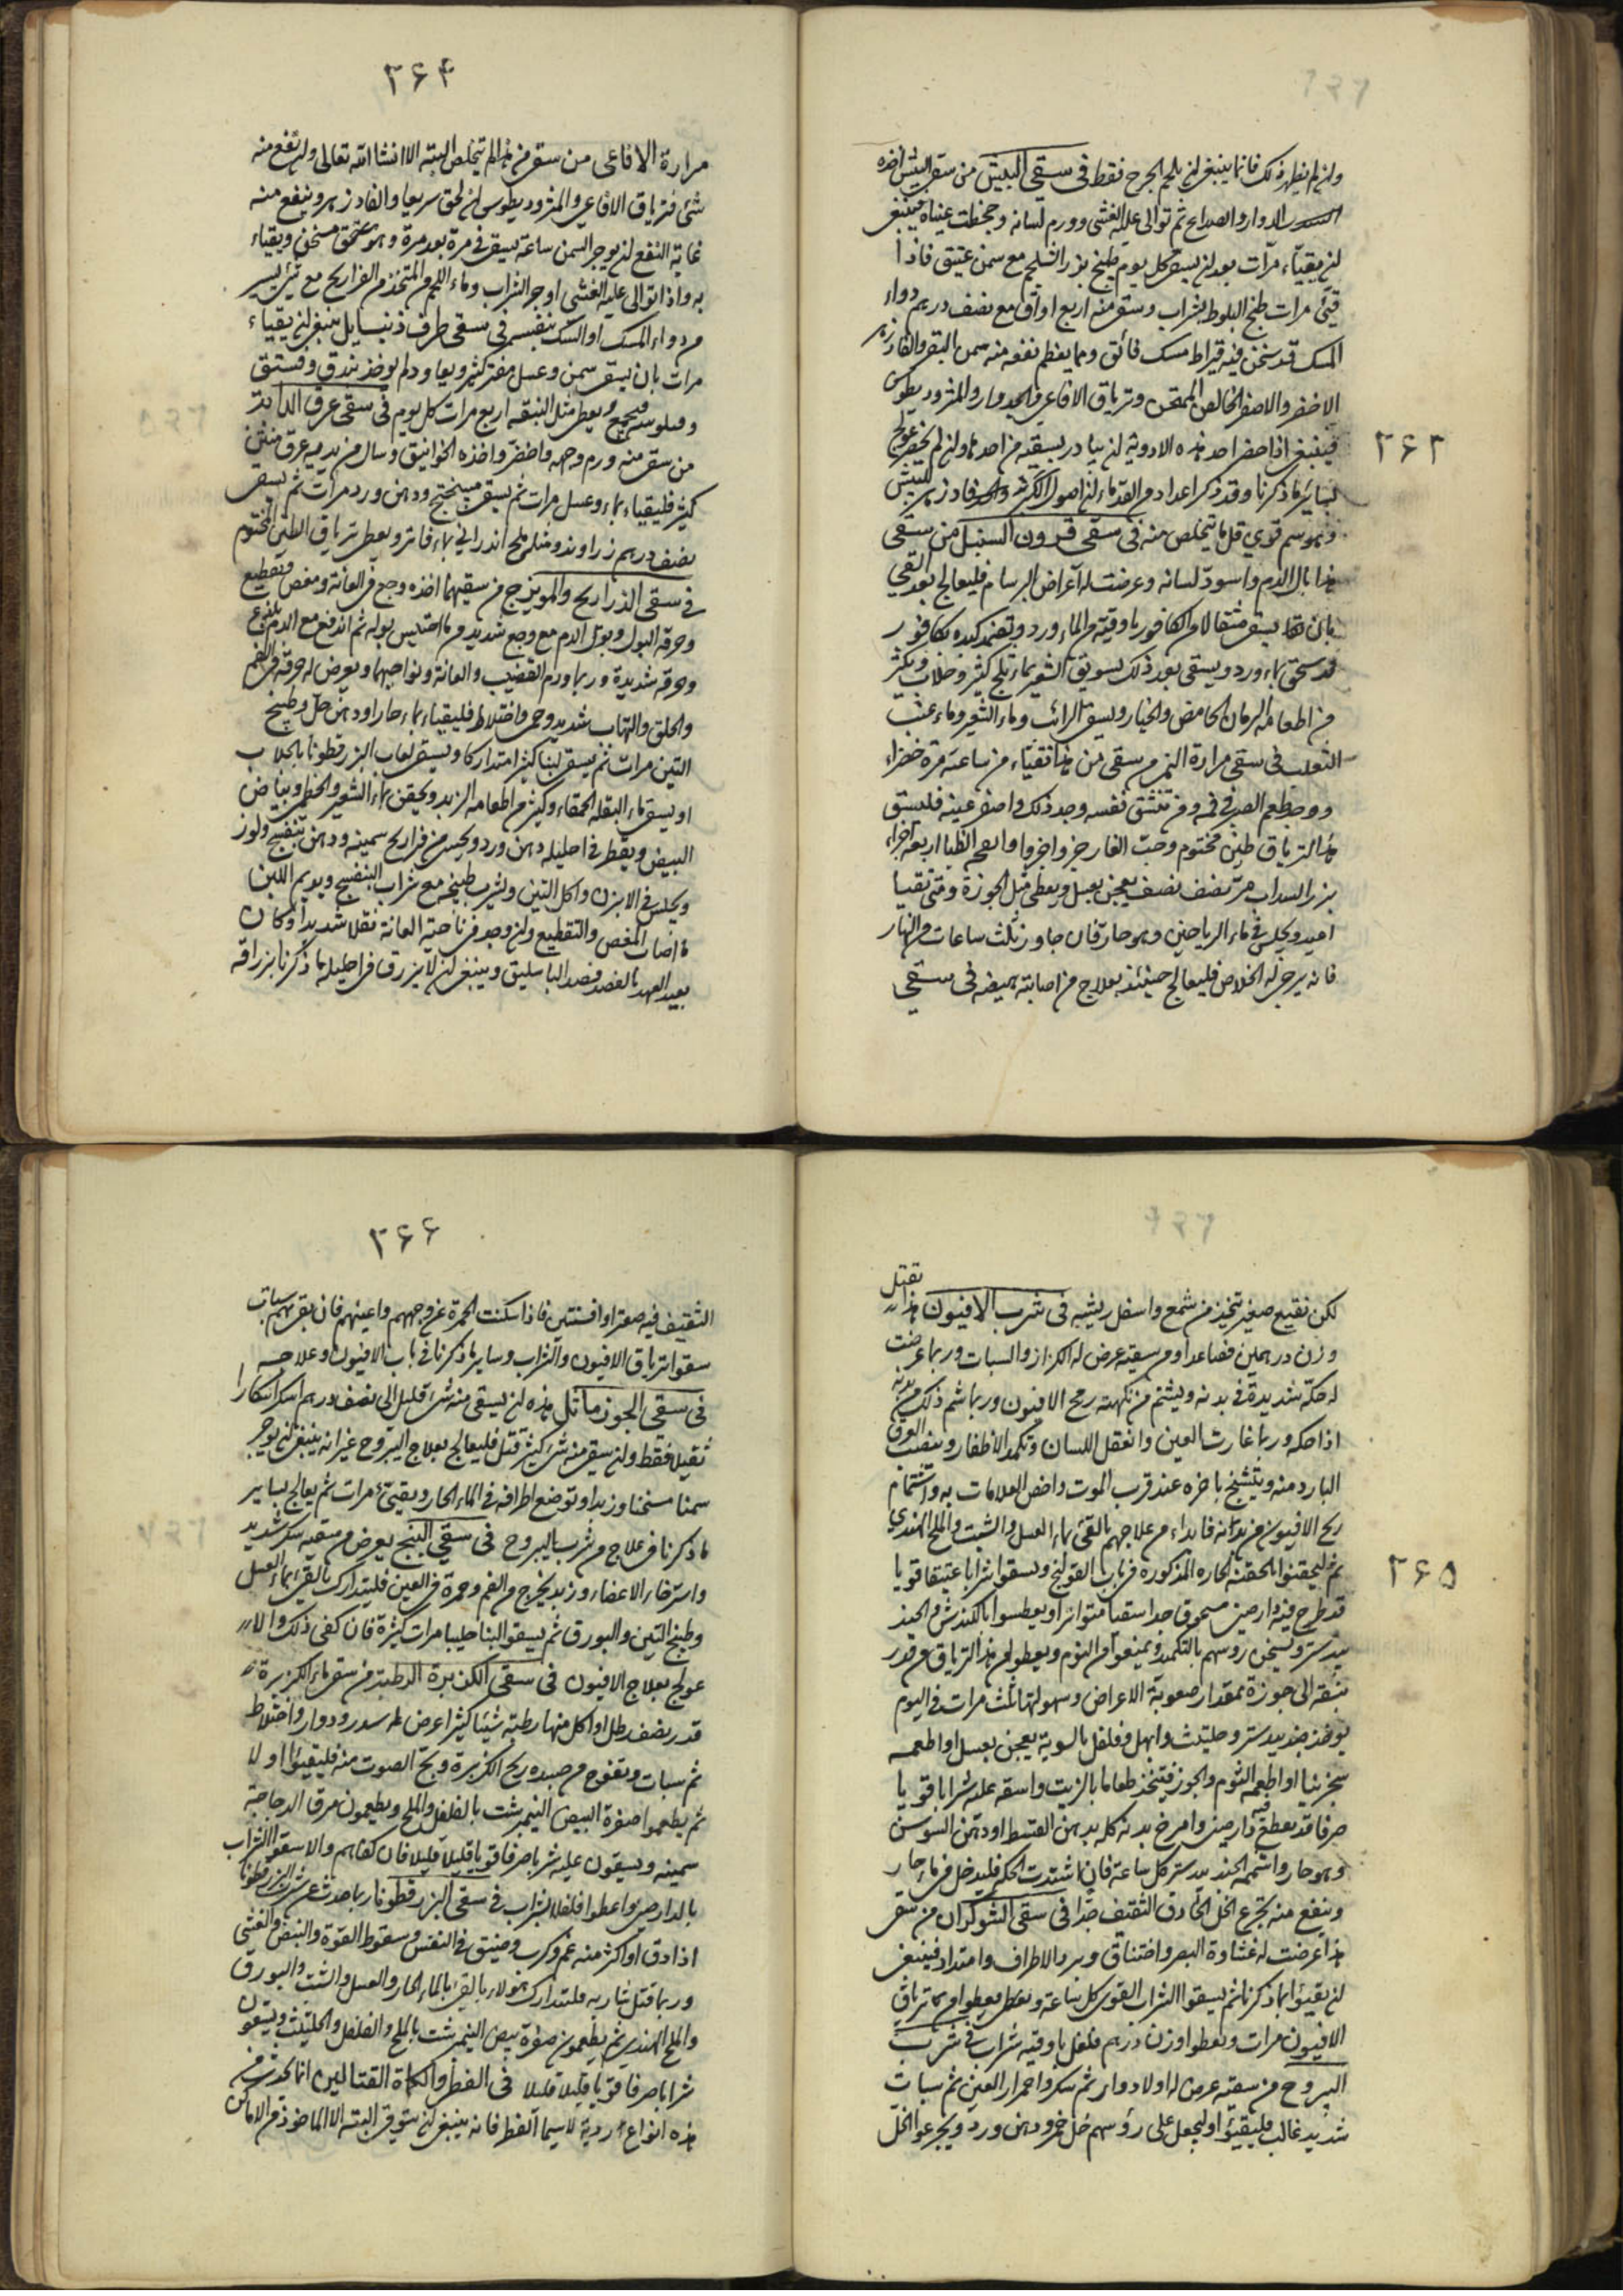 ٣۶٣
وان لم يظهر ذلك فانما ينبغى ان يلحم الجرح فقط فى سقى البيش من سقى البيش اخذه
الدوار والصداع ثم توالى عليه الغشى وورم لسانه وجحظت عيناه فينبغى
ان يقيّاء مرّات بعد ان يسقى كل يوم طبيخ بزر الشلجم مع سمن عتيق فاذا
قيّئ مرات طبخ البلوط بشراب وسقى منه اربع اواق مع نصف درهم دواء
المسك قد سخن فيه قيراط مسك فائق ومما يعظم نفعه منه سمن البقر والفادزهر
الاخضر والاصفر الخالص الممتحن وترياق الافاعى والجدوار والمثروديطوس
فينبغى اذا حضر احد هذه الادوية ان يبادر بسقيه من احدها وان لم يحضر عولج
بسائر ما ذكرنا وقد ذكر اعداد من القدماء ان اصول الكبر فادزهر البيش
وهو سم قوى قل ما يتخلص منه فى سقى قرون السنبل من سقى
هذا بال الدم واسودّ لسانه وعرضت له اعراض البرسام فليعالج بعد القى
بان يسقى مثقالا من الكافور باوقية من الماء ورد وتضمد كبده بكافور
قد سحق بماء ورد ويسقى بعد ذلك بسويق الشعير بماء ثلج كثير وجلاب ويكثر
من اطعامه الرمان الحامض والخيار ويسقى الرائب وماء الشعير وماء عنب
الثعلب فى سقى مرارة النمر من سقى من هذا تقيّاء من ساعته مرة خضراء
ووجد طعم الصبر فى فمه ومن تنشق نفسه وجد ذلك واصفر عينه فليسق
هذا الترياق طين مختوم وحبّ الغار جزو اجزوا وانفحة الظبا اربعة اجزاء
بزر السداب مرّ نصف نصف يعجن بعسل ويعطى مثل الجوزة ومتى تقيا
اعيد ويجلس فى ماء الرياحين وهو حار فان جاوز ثلث ساعات من النهار
فانه يرجى له الخلاص فليعالج حينئذ بعلاج من اصابته هيضه فى سقى
٣۶۴
مرارة الافاعى من سقى من هذا لم يتخلص البته الا انشا الله تعالى وان نفع منه
شئ فترياق الافاعى والمثروديطوس ان لحق سريعا والفادزهر وينفع منه
غاية النفع ان يوجر السمن ساعة يسقى مرة بعد مرة وهو مسخن ويقياء
به واذا توالى عليه الغشى اوجر الشراب وماء اللحم المتخذ من الفراريج مع شئ يسير
من دواء المسك او المسك بنفسه فى سقى طرف ذنب ايل ينبغى ان يقياء
مرات بان يسقى سمن وعسل مفتر كثير ويعاود ثم يوخذ بندق وفستق
ويعطى مثل النبقه اربع مرات كل يوم فى سقى عرق الدابة
من سقى منه ورم وجهه واخضرّ واخذه الخوانيق وسال من بدنه عرق منتن
كثير فليقياء بماء وعسل مرات ثم يسقى ميبختج ودهن ورد مرات ثم يسقى
نصف درهم زراوند ومثله ملح اندرانى بماء فاتر ويعطى ترياق الطين المختوم
فى سقى الذراريح والمويزج من سقيهما اخذه وجع فى العانة ومغص وتقطيع
وحرقة البول وبول الدم مع وجع شديد وربما احتبس بوله ثم اندفع مع الدم بلذع
وحرقه شديدة وربما ورم القضيب والعانة ونواحيهما ويعرض له حرقة فى الفم
والحلق والتهاب شديد وحمى واختلاط فليقياء بماء حار او دهن حل وطبيخ
التين مرات ثم يسقى لبنا كثيرا متداركا ويسقى لعاب البزرقطونا بالجلاب
او يسقى ماء البقلة الحمقاء ويكثر من اطعامه الزبد ويحقن بماء الشعير والخطمى وبياض
البيض ويقطر فى احليله دهن ورد ويحسى من فراريج سمينه ودهن بنفسج ولوز
ويجلس فى الابزن واكل التين ويشرب طبيخه مع شراب البنفسج ويديم اللبن
ما اصاب المغص والتقطيع وان وجد فى ناحية العانة ثقلا شديدا وكان
بعيد العهد بالفصد فصد الباسليق وينبغى ان لا يزرق فى احليله ما ذكرنا بزراقه
٣۶۵
لكن نقيع صغير يتخذ من شمع واسفل ريشيه فى شرب الافيون هذا يقتل
وزن درهمين فصاعدا ومن سقيه عرض له الكزاز والسبات وربما عرضت
له حكّة شديدة فى بدنه ويشتم من نكهته ريح الافيون وربما شم ذلك من بدنه
اذا حكه وربما غارت العين وانعقل اللسان وتكمد الاظفار وينصب العرق
البارد منه ويتشنج باخره عند قرب الموت واخص العلامات به واشتمام
ريح الافيون من بدنه فابداء من علاجهم بالقئ بماء العسل والشبت والملح الهندى
ثم ليحقنوا بالحقنة الحاره المذكوره فى باب القولنج ويسقوا شرابا عتيقا قويا
قد طرح فيه دارصينى مسحوق جدا سقيا متواترا ويعطسوا بالكندش والجند
بيدستر ويسخن روسهم بالتكميد ويمنعوا من النوم ويعطون هذا الترياق من قدر
نبقه الى جوزة بمقدار صعوبة الاعراض وسهولتها ثلث مرات فى اليوم
يوخذ جندبيدستر وحلتيث وابهل وفلفل بالسوية يعجن بعسل او اطعمه
سجزينا او اطعمه الثوم والجوز فيتخذ طعاما بالزيت واسقه عليه شرابا قويا
صرفا قد يعطى فيه دارصينى وامرخ بدنه كله بدهن القسط او دهن السوسن
وهو حار واشمه الجندبيدستر كل ساعة فان اشتدت الحكه فليدخل فى ماء حار
وينفع منه تجرع الخل الحاذق الثقيف جدّا فى سقى الشوكران من سقى
هذا عرضت له غشاوة البصر واختناق وبرد الاطراف وامتداد فينبغى
ان يقيئوا بما ذكرنا ثم يسقوا الشراب القوى كل ساعة ويعطوا من ترياق
الافيون مرات ويعطوا وزن درهم فلفل باوقيه شراب فى شرب
اليبروح من سقيه عرض له اولا دوار ثم سكر واحمرار العين ثم سبات
شديد غالب فليقيئوا وليجعل على رؤسهم خل خمر ودهن ورد ويجرعوا الخل
٣۶۶
الثقيف فيه صعتر او افسنتين فاذا سكنت الحمرة عن وجههم واعينهم فان بقى بهم سبات
سقوا ترياق الافيون والشراب وساير ما ذكرنا فى باب الافيون وعلاجه
فى سقى الجوز ماثل هذه ان يسقى منه شئ قليل الى نصف درهم اسكر اسكارا
ثقيلا فقط وان سقى منه شئ كثير قتل فليعالج بعلاج اليبروح غير انه ينبغى ان يوجر
سمنا مسخنا وزبدا وتوضع اطرافه فى الماء الحار ويقيئ مرات ثم يعالج بساير
ما ذكرنا فى علاج من شرب اليبروح فى سقى البنج يعرض من سقيه سكر شديد
واسترخاء الاعضاء وزبد يخرج من الفم وحمرة فى العين فليتدارك بالقئ بماء العسل
وطبيخ التين والبورق ثم يسقوا لبنا حليبا مرات كثيرة فان كفى ذلك والا
عولج بعلاج الافيون فى سقى الكزبرة الرطبة من سقى ماء الكزبرة
قدر نصف رطل او اكل منها رطبة شيئا كثيرا عرض له سدر ودوار واختلاط
ثم سبات وتفوح من جسده ريح الكزبرة وبحّ الصوت منه فليقيئوا اولا
ثم يطعموا صفرة البيض النيمبرشت بالفلفل والملح ويطعمون مرق الدجاجة
سمينه ويسقون عليه شرابا صرفا قويا قليلا قليلا فان كفاهم والا سقوا الشراب
بالدارصينى واعطوا فلفلا بشراب فى سقى البزر قطونا ربما حدث عن شرب البزرقطونا
اذا دق او اكثر منه غم وكرب وضيق فى النفس وسقوط القوة والنبض والغشى
وربما قتل شاربه فليتدارك هؤلاء بالقئ بالماء الحار والعسل والشبت والبورق
والملح الهندى ثم يطعمون صفرة بيض النيمبرشت بالملح والفلفل والحلتيث ويسقون
شرابا صرفا قويا قليلا قليلا فى الفطر والكماة القتالين انما يحدث من
هذه انواع ردية لا سيما الفطر فانه ينبغى ان يتوقى البته الا الماخوذ من الاماكن